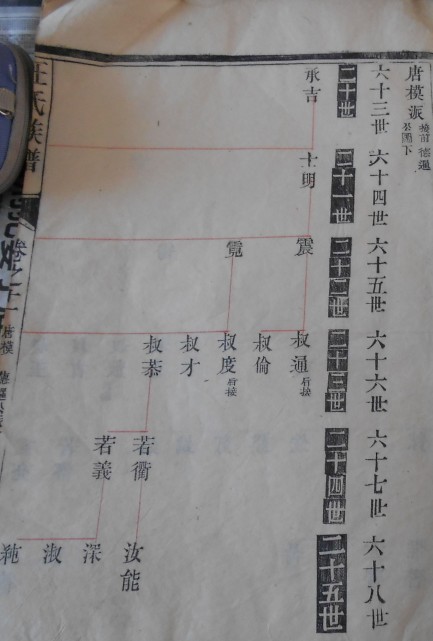 唐模派
接前德遠
公圖下
六十三世
六十四世
六十五世
六十六世
六十七世
六十八世
二十世
二十一世
二十二世
二十三世
二十四世
二十五世
承吉
士明
震
霓
叔通 后接
叔倫
叔度 后接
叔才
叔恭
若衢
若義
汝能
深
淑
純
汪氏族譜
卷之二
唐模